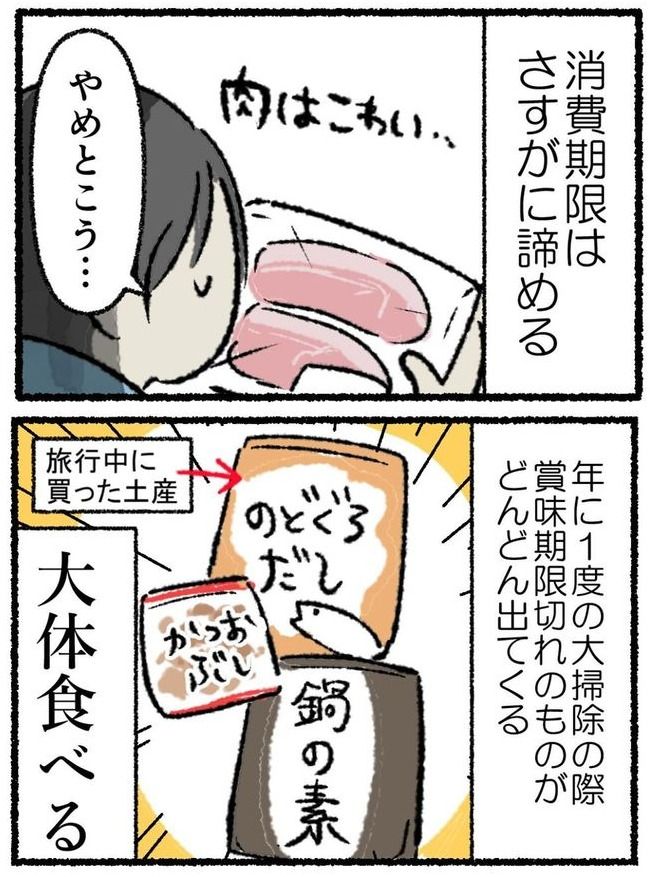 消費期限は
さすがに諦める
肉はこわい‥
やめとこう…
年に1度の大掃除の際
賞味期限切れのものが
どんどん出てくる
旅行中に
買った土産
のどぐろ
だし
かつお
ぶし
鍋の素
大体食べる